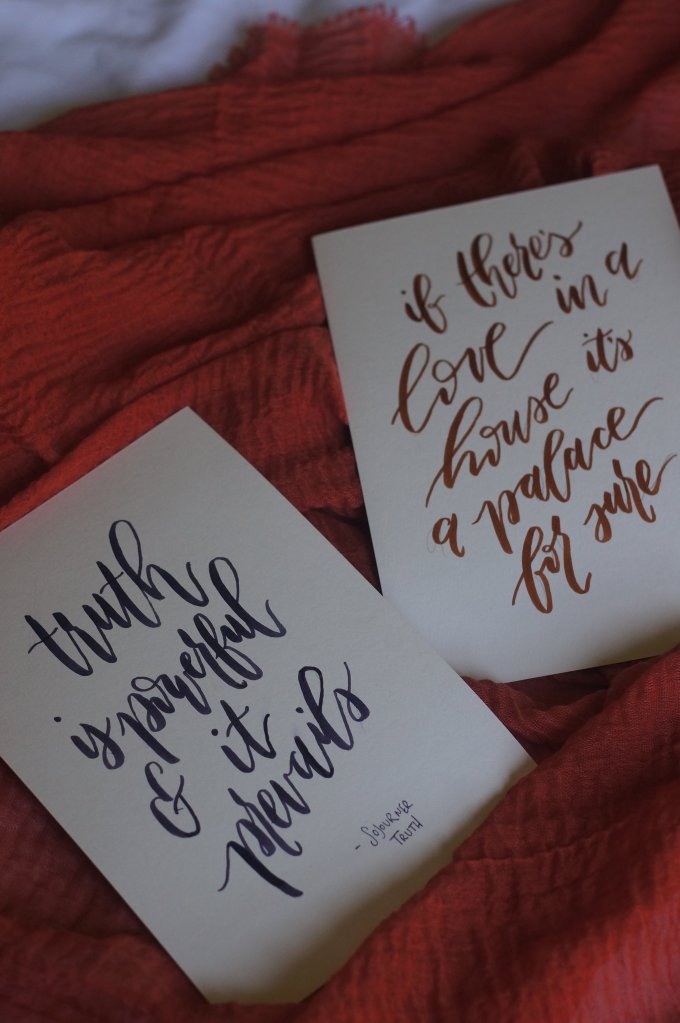 truth
is powerful
& it
prevails
- SOJOURNER
TRUTH
if there's
love in a
house it's
a palace
for sure